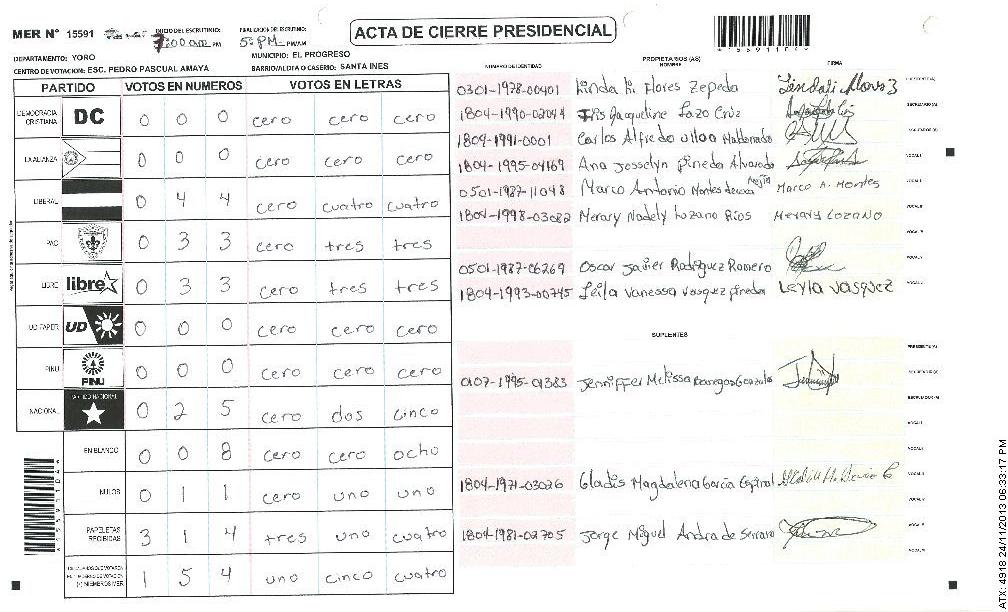 ACTA DE CIERRE PRESIDENCIAL
MER N° 15591
INICIO DEL ESCRUTINIO:
PM
FINALIZACION DEL ESCRUTINIO:
5:PM PM/AM
DEPARTAMENTO: YORO
MUNICIPIO: EL PROGRESO
CENTRO DE VOTACION: ESC. PEDRO PASCUAL AMAYA
BARRIO/ALDEA O CASERIO: SANTA INES
PARTIDO VOTOS EN NUMEROS VOTOS EN LETRAS
DEMOCRACIA CRISTIANA DC 0 0 0 cero cero cero
LA ALIANZA 0 0 0 cero cero cero
LIBERAL 0 4 4 cero cuatro cuatro
PAC 0 3 3 cero tres tres
LIBRE libre 0 3 3 cero tres tres
UD FAPER UD 0 0 0 cero cero cero
PINU PINU 0 0 0 cero cero cero
NACIONAL PARTIDO NACIONAL 0 2 5 cero dos cinco
EN BLANCO 0 0 8 cero cero ocho
NULOS 0 1 1 cero uno uno
PAPELETAS RECIBIDAS 3 1 4 tres uno cuatro
1 5 4 uno cinco cuatro
NUMERO DE IDENTIDAD
PROPIETARIOS (AS)
NOMBRE
FIRMA
0301-1978-00401 Linda Li Flores Zepeda
1804-1990-02044 Iris Jacqueline Lazo Cruz
1804-1991-0001 Carlos Alfredo Ulloa Maldonado
1804-1995-04169 Ana Josselyn Pineda Alvarado
0501-1987-11048 Marco Antonio Montes de oca Mejia Marco A. Montes
1804-1998-03082 Merary Nadely Lozano Rios Merary Lozano
0501-1987-06269 Oscar Javier Rodriguez Romero
1804-1993-00745 Leila Vanessa Vasquez Pineda Leyla Vasquez
SUPLENTES
0107-1995-01383 Jenniffer Melissa Banegas Gonzales
1804-1971-03026 Gladis Magdalena Garcia Espinal
1804-1981-02705 Jorge Miguel Andrade Serrano
ATX: 4918 24/11/2013 06:33:17 PM